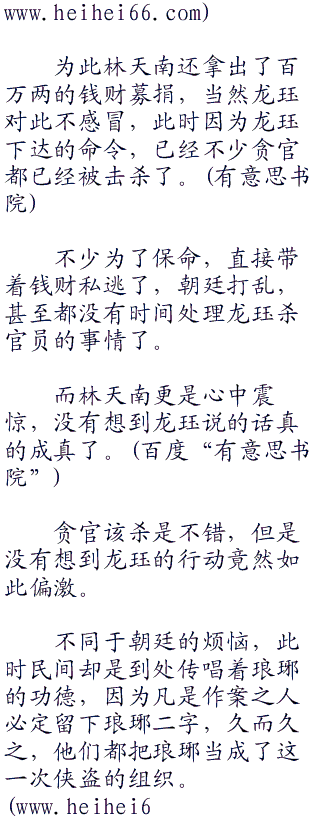 www.heihei66.com)
为此林天南还拿出了百
万两的钱财募捐，当然龙珏
对此不感冒，此时因为龙珏
下达的命令，已经不少贪官
都已经被击杀了。(有意思书
院)
不少为了保命，直接带
着钱财私逃了，朝廷打乱，
甚至都没有时间处理龙珏杀
官员的事情了。
而林天南更是心中震
惊，没有想到龙珏说的话真
的成真了。(百度“有意思书
院”)
贪官该杀是不错，但是
没有想到龙珏的行动竟然如
此偏激。
不同于朝廷的烦恼，此
时民间却是到处传唱着琅琊
的功德，因为凡是作案之人
必定留下琅琊二字，久而久
之，他们都把琅琊当成了这
一次侠盗的组织。
(www.heihei6